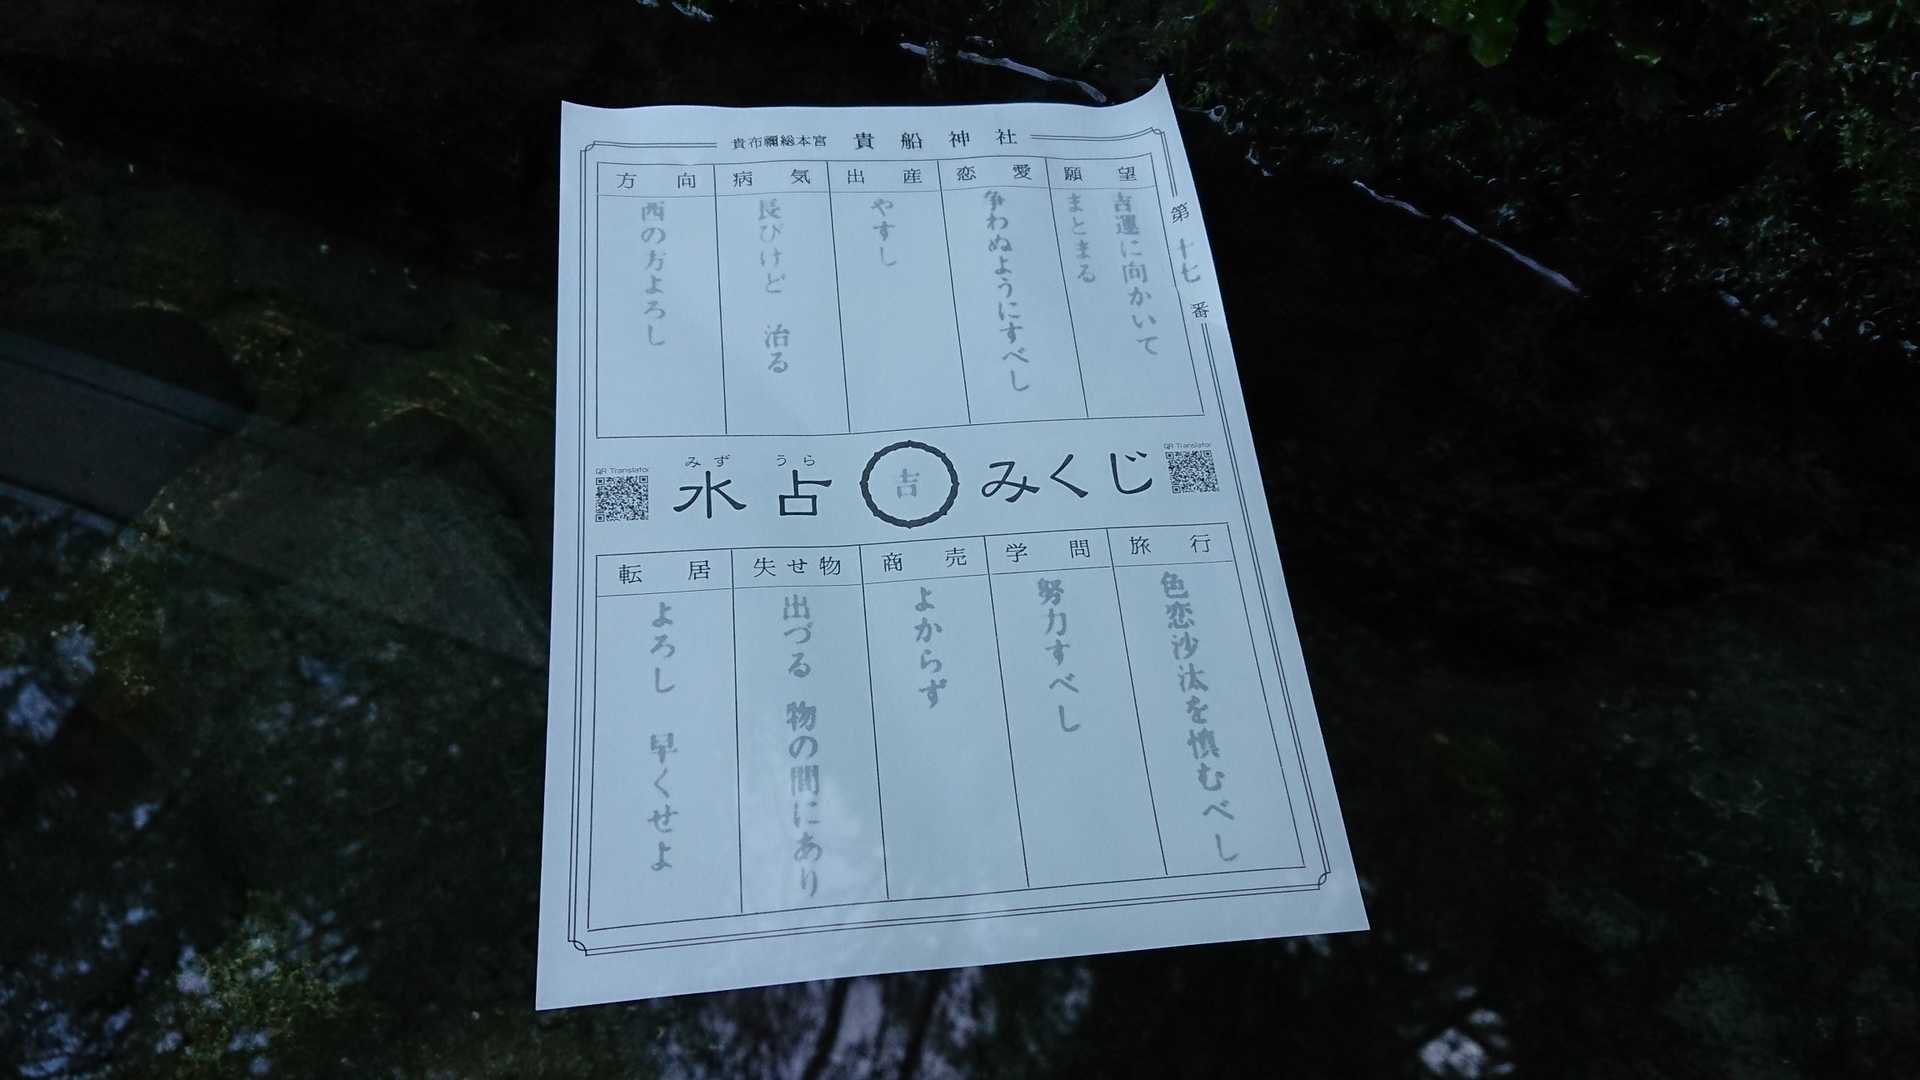 貴布禰総本宮 貴船神社
第十七番
願望
吉運に向かいて
まとまる
恋愛
争わぬようにすべし
出産
やすし
病気
長びけど 治る
方向
西の方よろし
QR Translator
みず うら
水占
吉
みくじ
QR Translator
旅行
色恋沙汰を慎むべし
学問
努力すべし
商売
よからず
失せ物
出づる 物の間にあり
転居
よろし 早くせよ